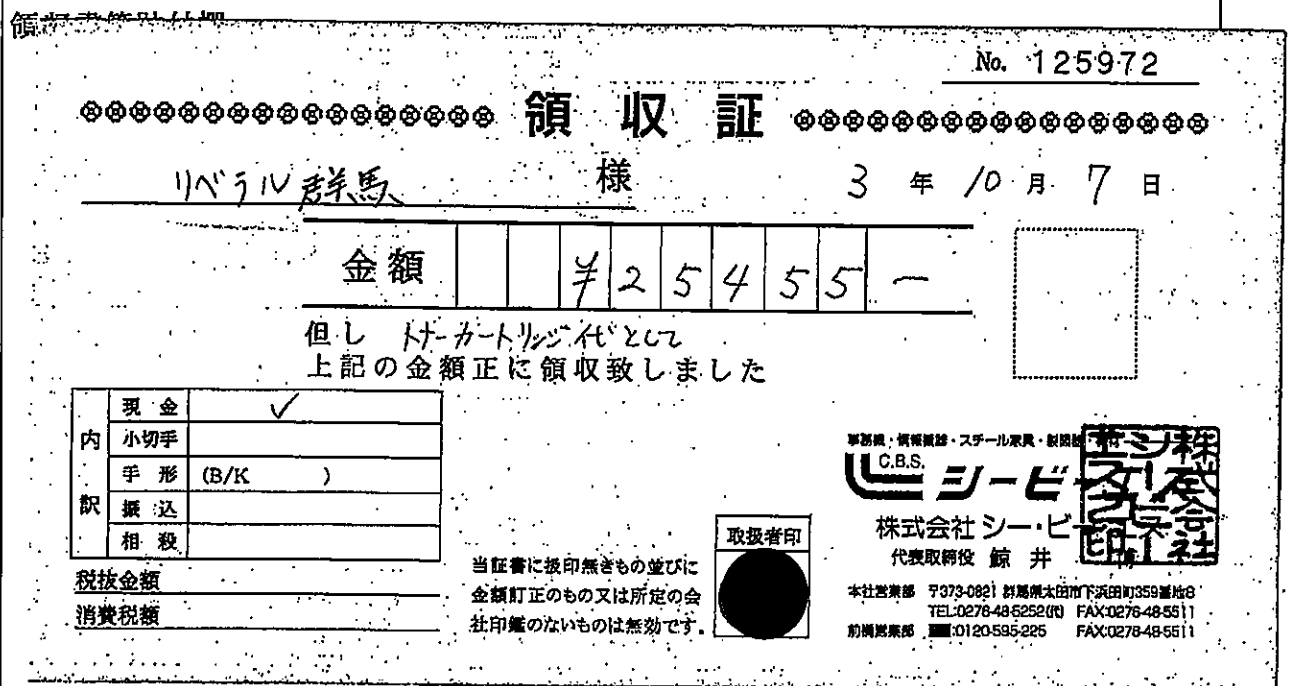 領収書等貼付欄
No. 125972
領収証
リベラル群馬 様 3年10月7日
金額 ¥25455-
但し トナーカートリッジ代として
上記の金額正に領収致しました
内訳
現金 ✓
小切手
手形 (B/K )
振込
相殺
税抜金額
消費税額
当証書に扱印無きもの並びに
金額訂正のもの又は所定の会
社印鑑のないものは無効です。
取扱者印
事務機・情報機器・スチール家具・製図
C.B.S. シービー
株式会社 シー・ビー
代表取締役 鯨井
本社営業部 〒373-0821 群馬県太田市下浜田町359番地8
TEL:0276-48-5252(代) FAX:0276-48-5511
前橋営業部 :0120-595-225 FAX:0276-48-5511